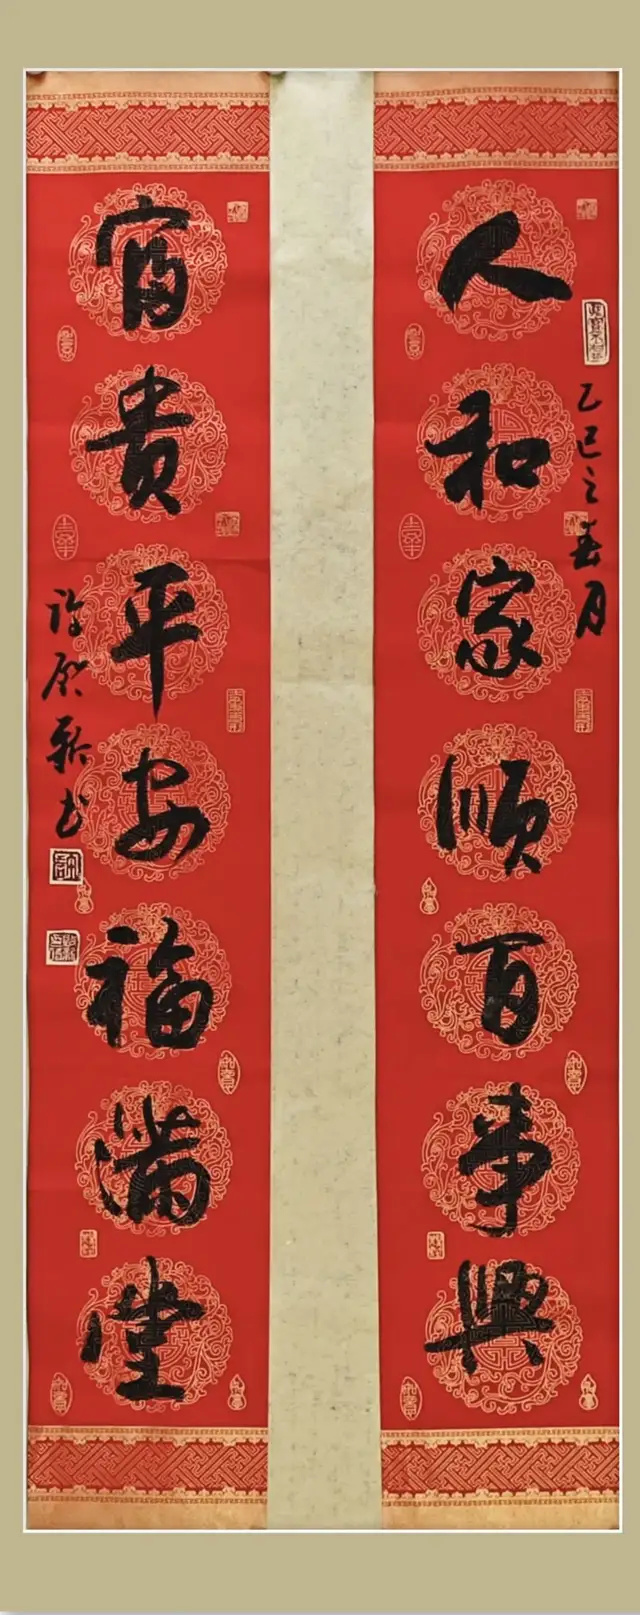 人和家顺百事興
乙巳之春月
富贵平安福满堂